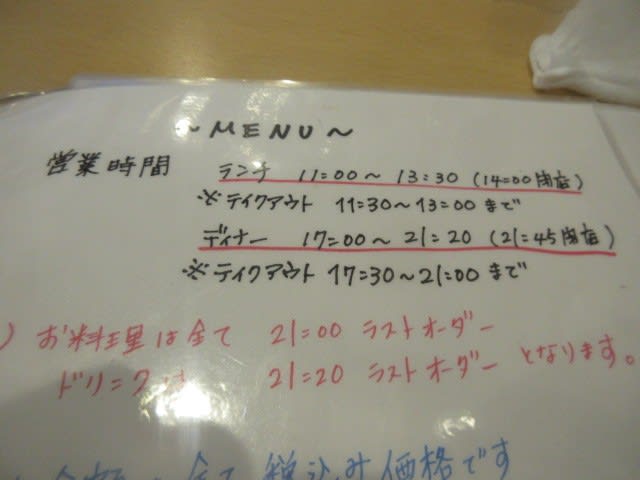 ~MENU~
営業時間 ランチ 11:00~13:30 (14:00閉店)
※テイクアウト 11:30~13:00まで
ディナー 17:00~21:20 (21:45閉店)
※テイクアウト 17:30~21:00まで
) お料理は全て 21:00 ラストオーダー
ドリンクは 21:20 ラストオーダー となります。
全て 税込み価格です